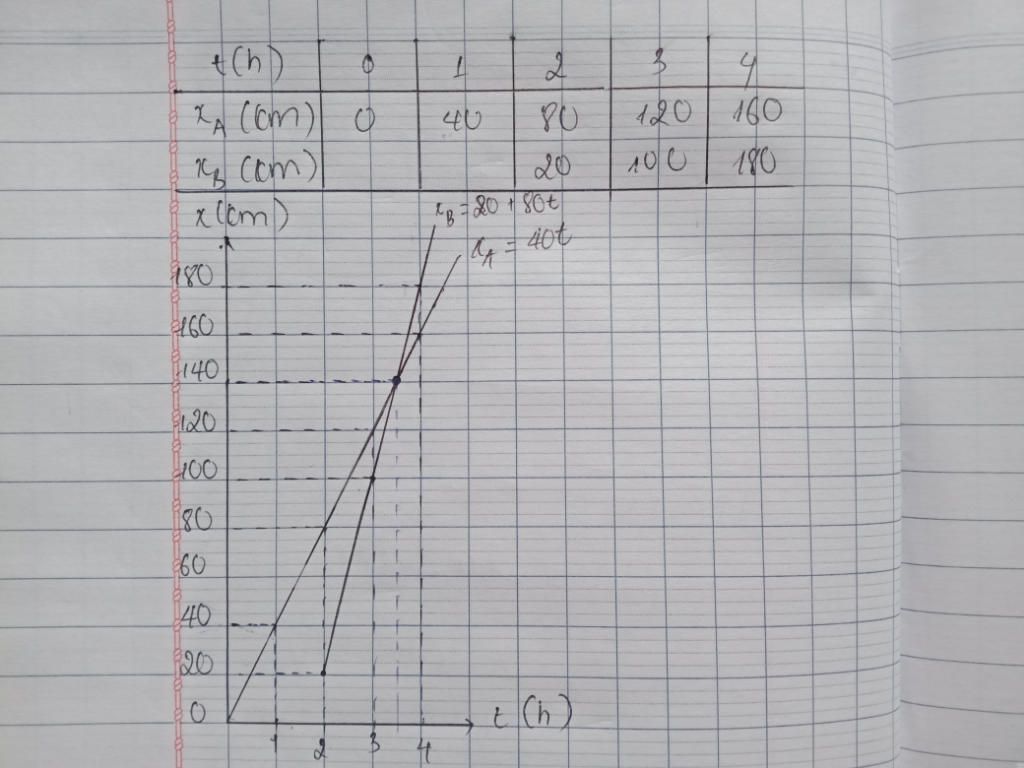 t(h) 0 1 2 3 4
x_A (cm) 0 40 80 120 160
x_B (cm) 20 100 180
x(cm)
x_B = 20 + 80t
x_A = 40t
180
160
140
120
100
80
60
40
20
0
t (h)
1 2 3 4